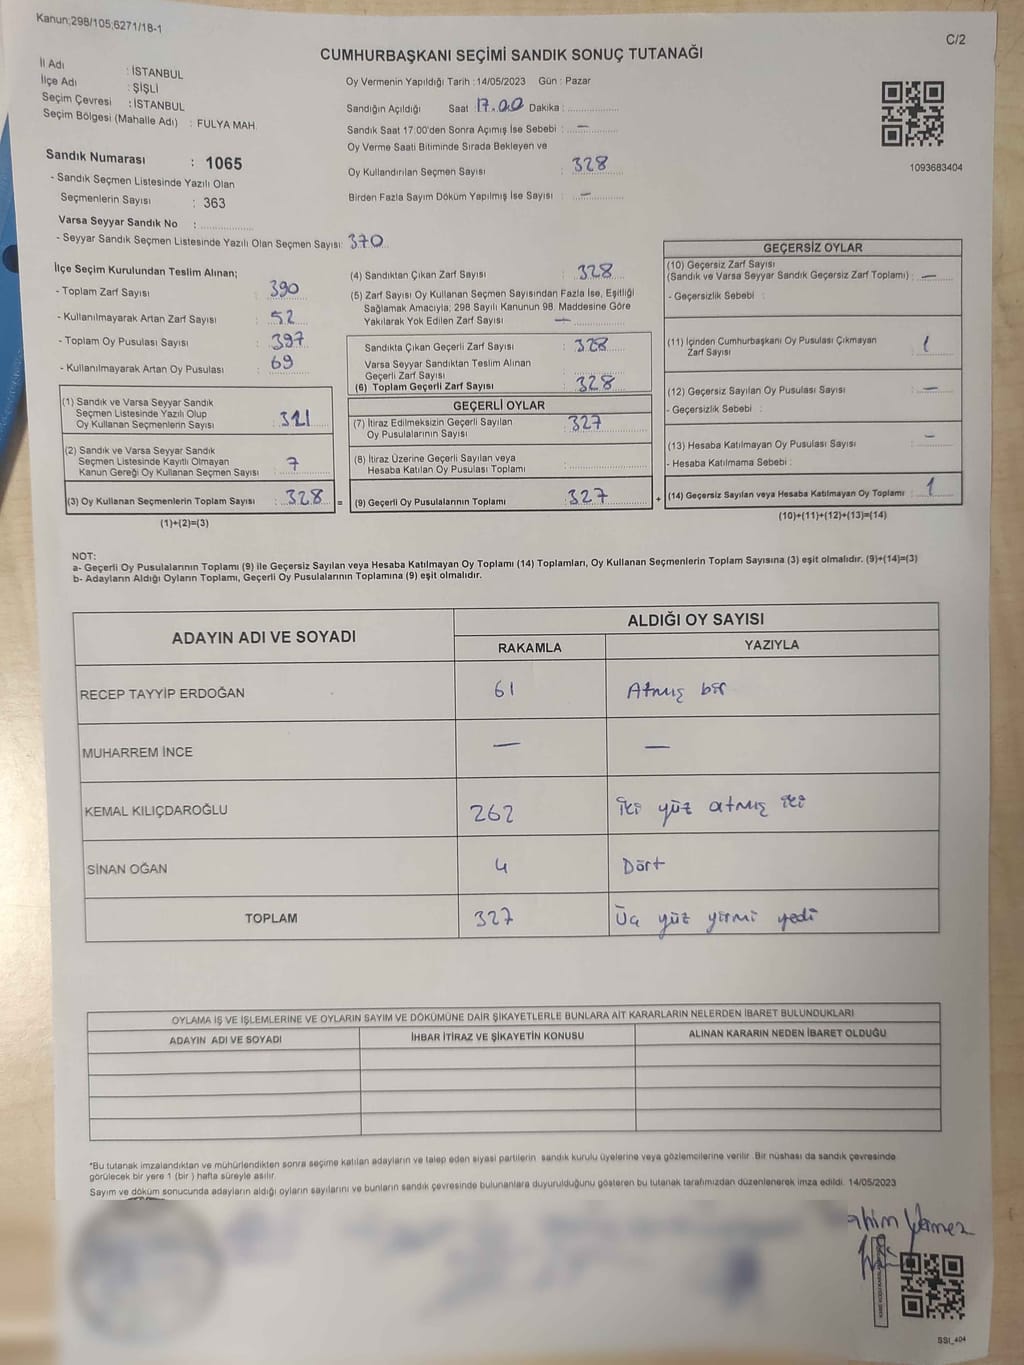 Kanun;298/105;6271/18-1
C/2
CUMHURBAŞKANI SEÇİMİ SANDIK SONUÇ TUTANAĞI
İl Adı : İSTANBUL
İlçe Adı : ŞİŞLİ
Seçim Çevresi : İSTANBUL
Seçim Bölgesi (Mahalle Adı) : FULYA MAH.
Sandık Numarası : 1065
- Sandık Seçmen Listesinde Yazılı Olan
Seçmenlerin Sayısı : 363
Varsa Seyyar Sandık No :
- Seyyar Sandık Seçmen Listesinde Yazılı Olan Seçmen Sayısı: 370
Oy Vermenin Yapıldığı Tarih :14/05/2023 Gün : Pazar
Sandığın Açıldığı Saat 17.00 Dakika :
Sandık Saat 17:00'den Sonra Açımış İse Sebebi : —
Oy Verme Saati Bitiminde Sırada Bekleyen ve
Oy Kullandırılan Seçmen Sayısı : 328
Birden Fazla Sayım Döküm Yapılmış İse Sayısı : —
1093683404
İlçe Seçim Kurulundan Teslim Alınan;
- Toplam Zarf Sayısı : 390
- Kullanılmayarak Artan Zarf Sayısı : 52
- Toplam Oy Pusulası Sayısı : 397
- Kullanılmayarak Artan Oy Pusulası : 69
(1) Sandık ve Varsa Seyyar Sandık
Seçmen Listesinde Yazılı Olup
Oy Kullanan Seçmenlerin Sayısı : 321
(2) Sandık ve Varsa Seyyar Sandık
Seçmen Listesinde Kayıtlı Olmayan
Kanun Gereği Oy Kullanan Seçmen Sayısı : 7
(3) Oy Kullanan Seçmenlerin Toplam Sayısı : 328 =
(1)+(2)=(3)
(4) Sandıktan Çıkan Zarf Sayısı : 328
(5) Zarf Sayısı Oy Kullanan Seçmen Sayısından Fazla İse, Eşitliği
Sağlamak Amacıyla, 298 Sayılı Kanunun 98. Maddesine Göre
Yakılarak Yok Edilen Zarf Sayısı : —
Sandıkta Çıkan Geçerli Zarf Sayısı : 328
Varsa Seyyar Sandıktan Teslim Alınan
Geçerli Zarf Sayısı :
(6) Toplam Geçerli Zarf Sayısı : 328
GEÇERLİ OYLAR
(7) İtiraz Edilmeksizin Geçerli Sayılan
Oy Pusulalarının Sayısı : 327
(8) İtiraz Üzerine Geçerli Sayılan veya
Hesaba Katılan Oy Pusulası Toplamı :
(9) Geçerli Oy Pusulalarının Toplamı : 327 +
GEÇERSİZ OYLAR
(10) Geçersiz Zarf Sayısı
(Sandık ve Varsa Seyyar Sandık Geçersiz Zarf Toplamı) : —
- Geçersizlik Sebebi :
(11) İçinden Cumhurbaşkanı Oy Pusulası Çıkmayan
Zarf Sayısı : 1
(12) Geçersiz Sayılan Oy Pusulası Sayısı : —
- Geçersizlik Sebebi :
(13) Hesaba Katılmayan Oy Pusulası Sayısı : —
- Hesaba Katılmama Sebebi :
(14) Geçersiz Sayılan veya Hesaba Katılmayan Oy Toplamı : 1
(10)+(11)+(12)+(13)=(14)
NOT:
a- Geçerli Oy Pusulalarının Toplamı (9) ile Geçersiz Sayılan veya Hesaba Katılmayan Oy Toplamı (14) Toplamları, Oy Kullanan Seçmenlerin Toplam Sayısına (3) eşit olmalıdır. (9)+(14)=(3)
b- Adayların Aldığı Oyların Toplamı, Geçerli Oy Pusulalarının Toplamına (9) eşit olmalıdır.
ADAYIN ADI VE SOYADI ALDIĞI OY SAYISI
RAKAMLA YAZIYLA
RECEP TAYYİP ERDOĞAN 61 Atmış bir
MUHARREM İNCE — —
KEMAL KILIÇDAROĞLU 262 iki yüz atmış iki
SİNAN OĞAN 4 Dört
TOPLAM 327 Üç yüz yirmi yedi
OYLAMA İŞ VE İŞLEMLERİNE VE OYLARIN SAYIM VE DÖKÜMÜNE DAİR ŞİKAYETLERLE BUNLARA AİT KARARLARIN NELERDEN İBARET BULUNDUKLARI
ADAYIN ADI VE SOYADI İHBAR İTİRAZ VE ŞİKAYETİN KONUSU ALINAN KARARIN NEDEN İBARET OLDUĞU
*Bu tutanak imzalandıktan ve mühürlendikten sonra seçime katılan adayların ve talep eden siyasi partilerin sandık kurulu üyelerine veya gözlemcilerine verilir. Bir nüshası da sandık çevresinde
görülecek bir yere 1 (bir ) hafta süreyle asılır.
Sayım ve döküm sonucunda adayların aldığı oyların sayılarını ve bunların sandık çevresinde bulunanlara duyurulduğunu gösteren bu tutanak tarafımızdan düzenlenerek imza edildi. 14/05/2023
SSI_404